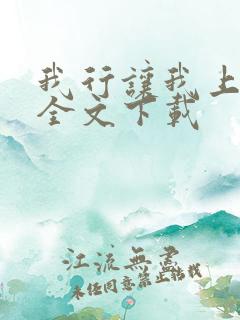 我行讓我上
全文下載
江流無盡
未经同意禁止转载